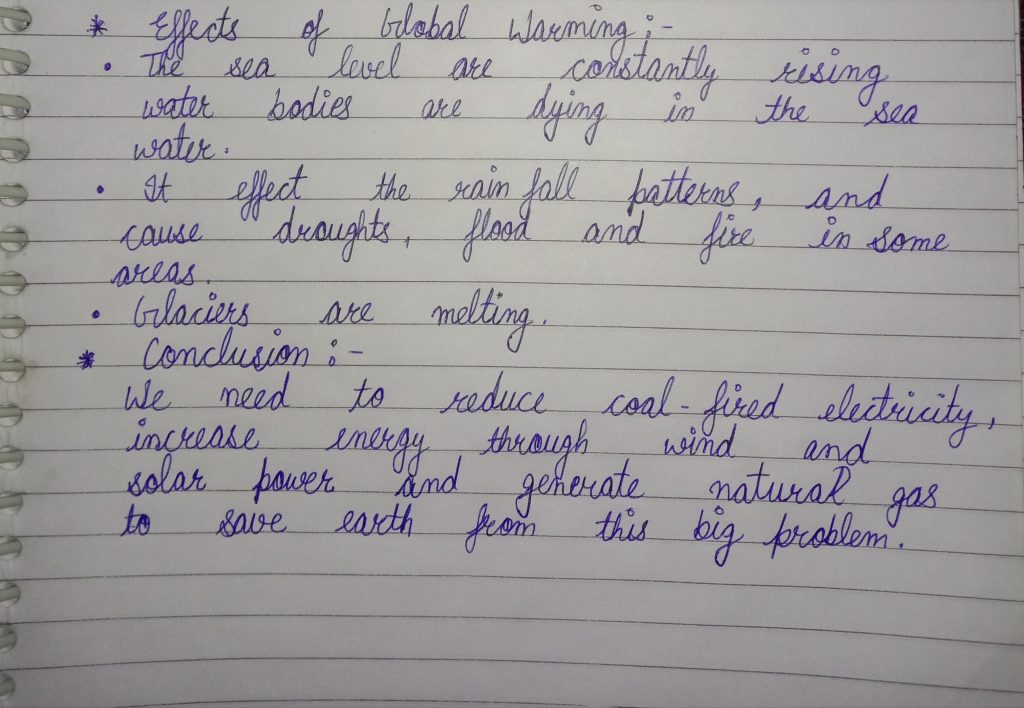 * Effects of Global Warming :-
• The sea level are constantly rising
water bodies are dying in the sea
water.
• It effect the rain fall patterns, and
cause droughts, flood and fire in some
areas.
• Glaciers are melting.
* Conclusion :-
We need to reduce coal-fired electricity,
increase energy through wind and
solar power and generate natural gas
to save earth from this big problem.